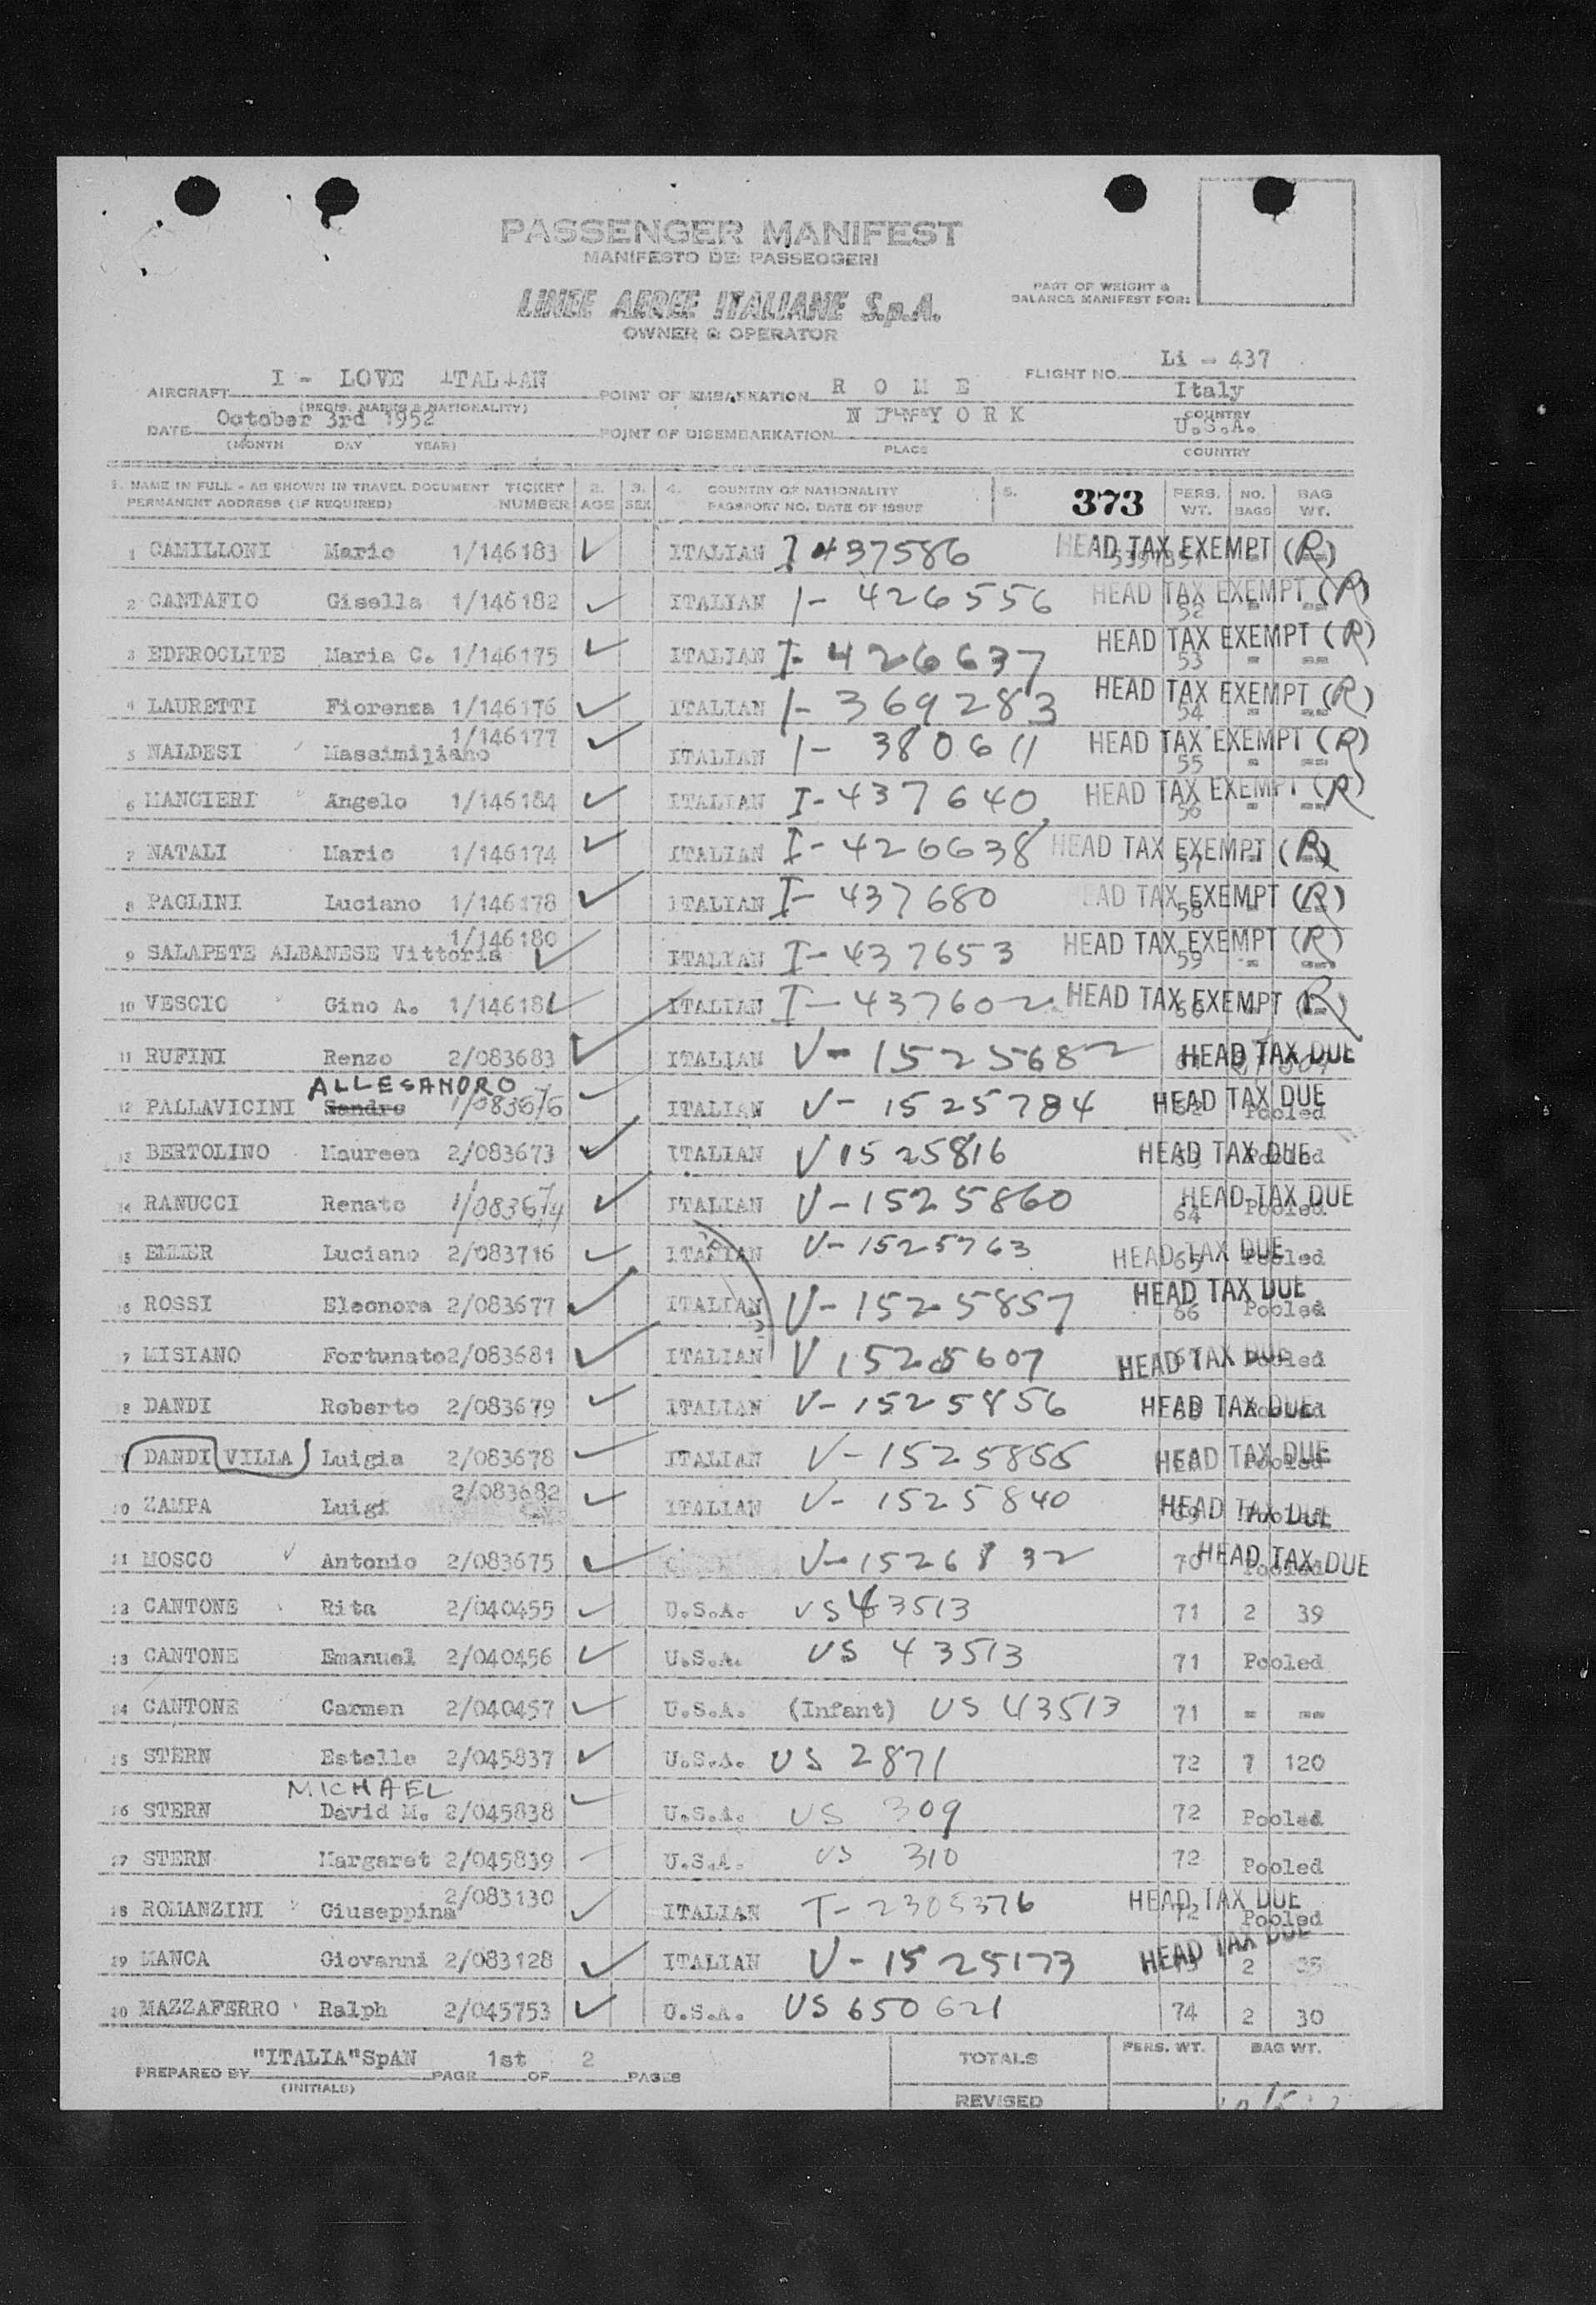 PASSENGER MANIFEST
MANIFESTO DEI PASSEGGERI
LINEE AEREE ITALIANE S.p.A.
OWNER & OPERATOR
PART OF WEIGHT &
BALANCE MANIFEST FOR:
AIRCRAFT I - LOVE ITALIAN
(REGIS. MARKS & NATIONALITY)
POINT OF EMBARKATION R O M E
PLACE
FLIGHT NO. Li - 437
Italy
COUNTRY
DATE October 3rd 1952
(MONTH DAY YEAR)
POINT OF DISEMBARKATION N E W Y O R K
PLACE
U.S.A.
COUNTRY
1. NAME IN FULL - AS SHOWN IN TRAVEL DOCUMENT TICKET 2. 3. 4. COUNTRY OF NATIONALITY 5. 373 PERS. NO. BAG
PERMANENT ADDRESS (IF REQUIRED) NUMBER AGE SEX PASSPORT NO. DATE OF ISSUE WT. BAGS WT.
1 CAMILLONI Mario 1/146183 ITALIAN I 437586 HEAD TAX EXEMPT (R)
2 CANTAFIO Gisella 1/146182 ITALIAN I- 426556 HEAD TAX EXEMPT (R) 52 = ==
3 EDEROCLITE Maria C. 1/146175 ITALIAN I- 426637 HEAD TAX EXEMPT (R) 53 = ==
4 LAURETTI Fiorenza 1/146176 ITALIAN I- 369283 HEAD TAX EXEMPT (R) 54 = ==
5 NALDESI Massimiliano 1/146177 ITALIAN I- 380611 HEAD TAX EXEMPT (R) 55 = ==
6 MANCIERI Angelo 1/146184 ITALIAN I-437640 HEAD TAX EXEMPT (R) 56 = ==
7 NATALI Mario 1/146174 ITALIAN I-426638 HEAD TAX EXEMPT (R) 57
8 PAOLINI Luciano 1/146178 ITALIAN I- 437680 HEAD TAX EXEMPT (R) 58
9 SALAPETE ALBANESE Vittoria 1/146180 ITALIAN I-437653 HEAD TAX EXEMPT (R) 59 = ==
10 VESCIO Gino A. 1/146181 ITALIAN I-437602 HEAD TAX EXEMPT (R)
11 RUFINI Renzo 2/083683 ITALIAN V-1525682 HEAD TAX DUE
ALLESANDRO
12 PALLAVICINI Sandro 1/083676 ITALIAN V-1525784 HEAD TAX DUE Pooled
13 BERTOLINO Maureen 2/083673 ITALIAN V1525816 HEAD TAX DUE Pooled
14 RANUCCI Renato 1/083674 ITALIAN V-1525860 64 HEAD TAX DUE Pooled
15 EMMER Luciano 2/083716 ITALIAN V-1525763 HEAD TAX DUE 65 Pooled
16 ROSSI Eleonora 2/083677 ITALIAN V-1525857 HEAD TAX DUE 66 Pooled
17 MISIANO Fortunato 2/083681 ITALIAN V 1525607 HEAD TAX DUE 67 Pooled
18 DANDI Roberto 2/083679 ITALIAN V-1525856 HEAD TAX DUE Pooled
19 DANDI VILLA Luigia 2/083678 ITALIAN V-1525855 HEAD TAX DUE Pooled
20 ZAMPA Luigi 2/083682 ITALIAN V-1525840 HEAD TAX DUE Pooled
21 MOSCO Antonio 2/083675 V-1526832 70 HEAD TAX DUE Pooled
22 CANTONE Rita 2/040455 U.S.A. US 43513 71 2 39
23 CANTONE Emanuel 2/040456 U.S.A. US 43513 71 Pooled
24 CANTONE Carmen 2/040457 U.S.A. (Infant) US 43513 71 = ==
25 STERN Estelle 2/045837 U.S.A. US 2871 72 7 120
MICHAEL
26 STERN David M. 2/045838 U.S.A. US 309 72 Pooled
27 STERN Margaret 2/045839 U.S.A. US 310 72 Pooled
28 ROMANZINI Giuseppina 2/083130 ITALIAN T-2305376 HEAD TAX DUE 72 Pooled
29 MANCA Giovanni 2/083128 ITALIAN V-1525173 HEAD TAX DUE 2 35
30 MAZZAFERRO Ralph 2/045753 U.S.A. US 650621 74 2 30
PREPARED BY "ITALIA"SpAN PAGE 1st OF 2 PAGES
(INITIALS)
TOTALS PERS. WT. BAG WT.
REVISED